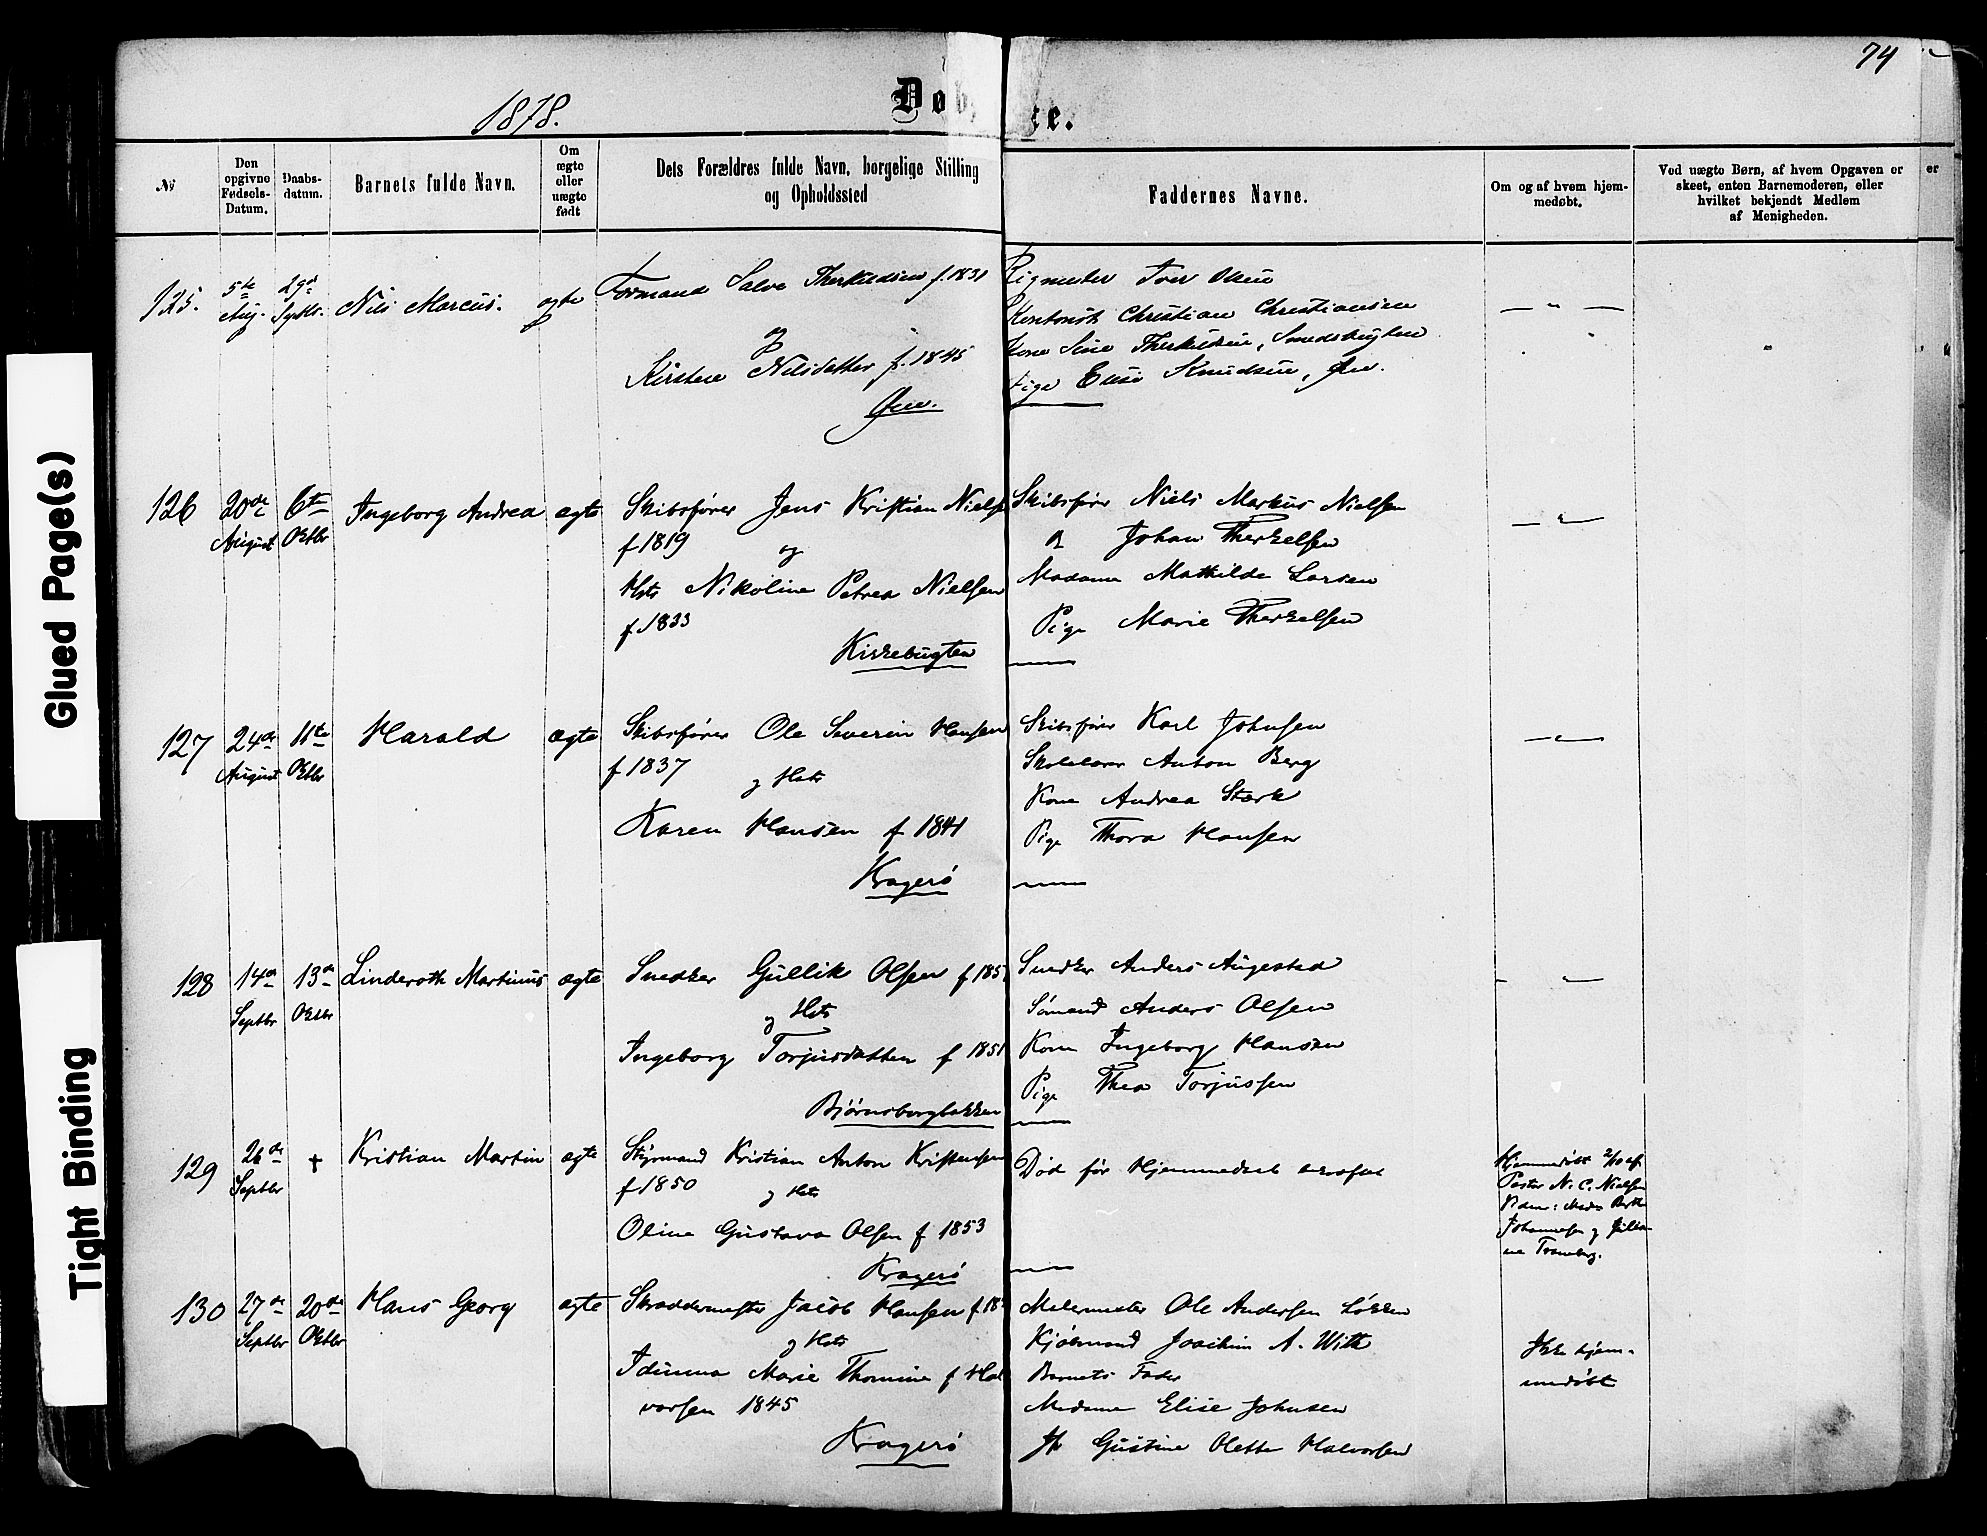 74
1878.
Døb
ge.
№
Den opgivne Fødsels-Datum.
Daabs-datum.
Barnets fulde Navn.
Om ægte eller uægte født
Dets Forældres fulde Navn, borgelige Stilling og Opholdssted
Faddernes Navne.
Om og af hvem hjem-medøbt.
Ved uægte Børn, af hvem Opgaven er skeet, enten Barnemoderen, eller hvilket bekjendt Medlem af Menigheden.
er
125. 5te Aug. 29de Septbr. Nils Marcus. ægte
Formand Salve Therkildsen f. 1831
og
Kirsten Nilsdatter f. 1845
Øen.
Rigmester Iver Olsen
Christian Christiansen
Kone Sine Therkildsen, Smedsbugten
Pige Elise Knudsen, Øen.
126 20de August 6te Oktbr Ingeborg Andrea ægte
Skibsfører Jens Kristian Niels
f 1819 og
Hst Nikoline Petrea Nielsen
f. 1833
Kirkebugten
Skibsfører Niels Markus Nielsen
Johan Therkelsen
Madame Mathilde Larsen
Pige Marie Therkelsen
127 24de August 11te Oktbr Harald ægte
Skibsfører Ole Severin Hansen
f 1837 og Hst
Karen Hansen f 1841
Kragerø
Skibsfører Karl Johnsen
Skolelærer Anton Berg
Kone Andrea Stærk
Pige Thora Hansen
128 14de Septbr 13de Oktbr Linderoth Martinus ægte
Snedker Gullik Olsen f 185
og Hst
Ingeborg Torjusdatter f 1851
Bjørnsborgbakken
Snedker Anders Augestad
Sømand Anders Olsen
Kone Ingeborg Hansen
Pige Thea Torjussen
129 26de Septbr † Kristian Martin ægte
Styrmand Kristian Anton Kristensen
f 1850 og Hst
Oline Gustava Olsen f 1853
Kragerø
Død før Hjemmedaab
Hjemmedøbt 2/10 af
Pastor N. C. Nielsen
Johannesen og
Tramborg.
130 27de Septbr 20de Oktbr Hans Georg ægte
Skræddermester Jacob Hansen f. 18
og Hst
Idunna Marie Thomine f Hal
vorsen 1845
Kragerø
Malermester Ole Andersen Løkken
Kjøbmand Joachim A. With
Barnets Fader
Madame Elise Johnsen
Jfr Gustine Olette Halvorsen
Ikke hjem-
medøbt
Glued Page(s)
Tight Binding